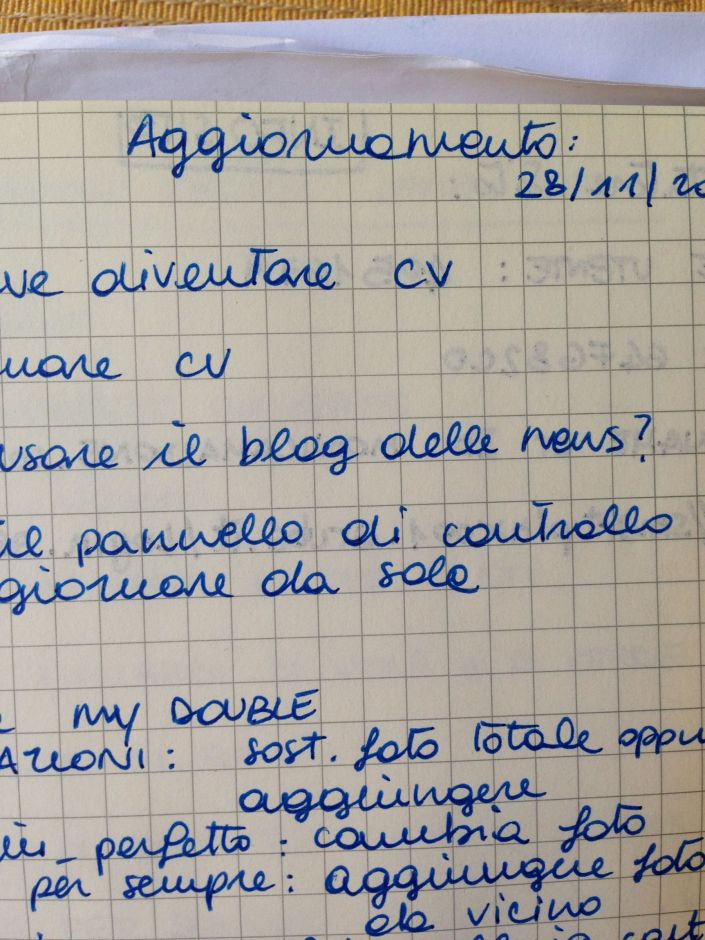 Aggiornamento:
28/11/20
ve diventare CV
nare CV
usare il blog delle news?
il pannello di controllo
giornare da sola
my DOUBLE
AZIONI: sost. foto totale oppu
aggiungere
perfetto: cambia foto
per sempre: aggiungere foto
da vicino